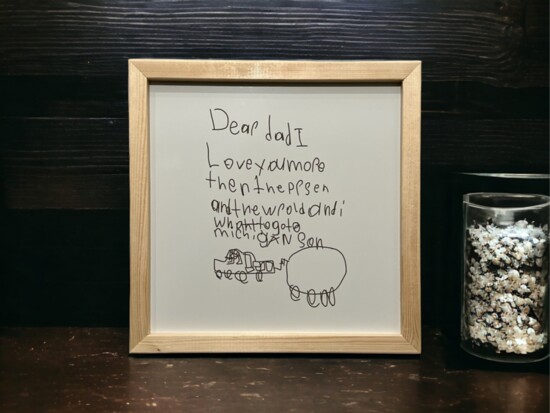 Dear dad I
Love you more
then the prsen
and the wrold and i
whant to go to
michigAN Son